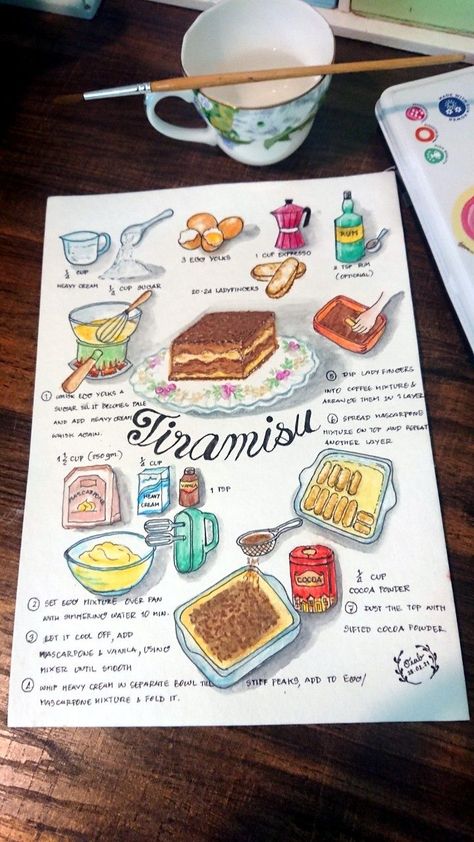 1/2 CUP
HEAVY CREAM
1/2 CUP SUGAR
3 EGG YOLKS
1 CUP EXPRESSO
RUM
2 TSP RUM
(OPTIONAL)
20-24 LADYFINGERS
① WHISK EGG YOLKS &
SUGAR TIL IT BECOMES PALE
AND ADD HEAVY CREAM
WHISK AGAIN.
Tiramisu
⑤ DIP LADY FINGERS
INTO COFFEE MIXTURE &
ARRANGE THEM IN 1 LAYER
⑥ SPREAD MASCARPONE
MIXTURE ON TOP AND REPEAT
ANOTHER LAYER
1 1/2 CUP (350 gm.)
MASCARPONE
1/2 CUP
HEAVY
CREAM
VANILLA
1 TSP
② SET EGG MIXTURE OVER PAN
WITH SIMMERING WATER 10 MIN.
③ LET IT COOL OFF, ADD
MASCARPONE & VANILLA, USING
MIXER UNTIL SMOOTH
④ WHIP HEAVY CREAM IN SEPARATE BOWL TILL STIFF PEAKS, ADD TO EGG/
MASCARPONE MIXTURE & FOLD IT.
COCOA
1/2 CUP
COCOA POWDER
⑦ DUST THE TOP WITH
SIFTED COCOA POWDER